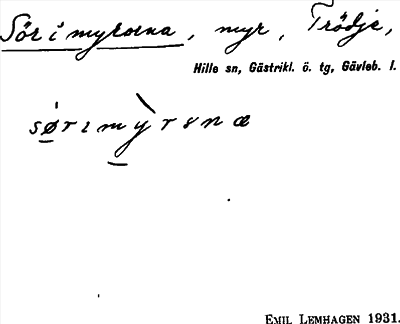 Sör i myrorna, myr, Trödje,
Hille sn, Gästrikl. ö. tg, Gävleb. l.
sørımỳrsnæ
EMIL LEMHAGEN 1931.